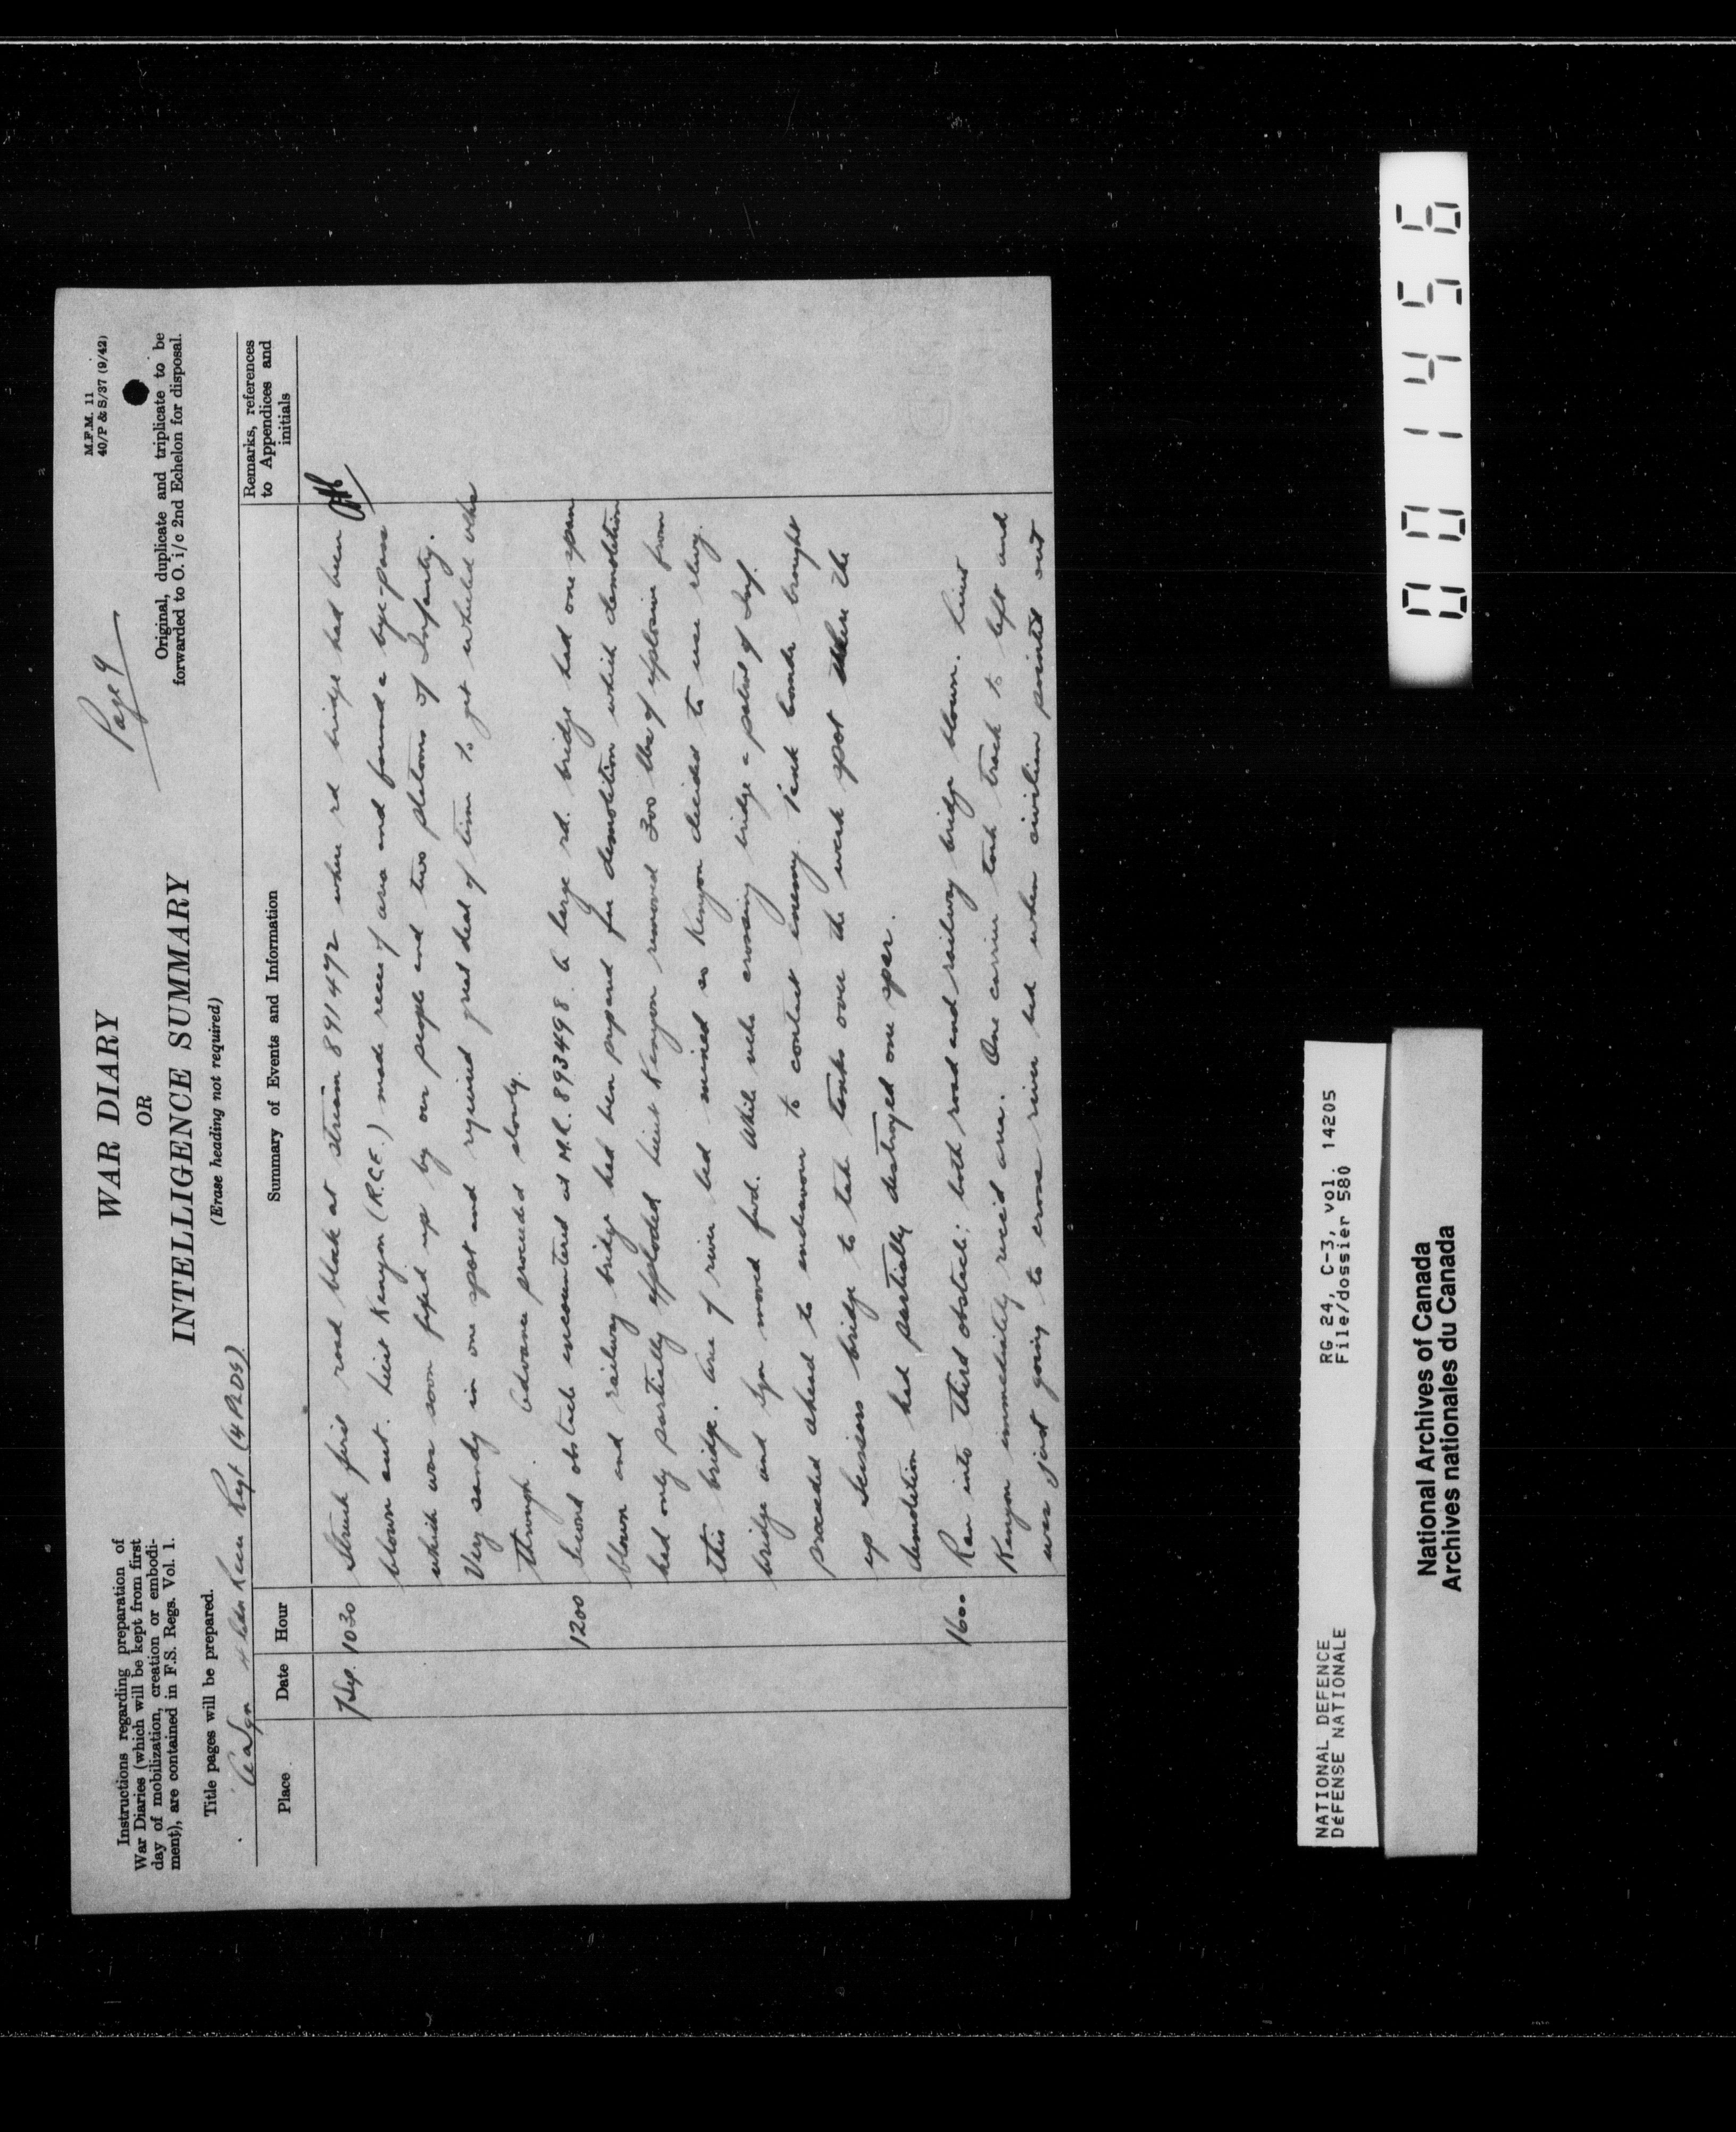 Page 9
M.F.M. 11
40/P & S/37 (9/42)
Instructions regarding preparation of
War Diaries (which will be kept from first
day of mobilization, creation or embodi-
ment), are contained in F.S. Regs. Vol. 1.
Title pages will be prepared.
WAR DIARY
OR
INTELLIGENCE SUMMARY
(Erase heading not required)
Original, duplicate and triplicate to be
forwarded to O. i/c 2nd Echelon for disposal.
Sqn 4 Cdn Recce Regt (4 PLDG)
Place Date Hour Summary of Events and Information Remarks, references
to Appendices and
initials
7 Sep. 1030 Struck first road block at stream 891472 where rd bridge had been
blown out. Lieut Kenyon (R.C.E.) made recce of area and found a bye-pass
which was soon fixed up by our people and two platoons of Infantry.
Very sandy in one spot and required great deal of time to get wheeled vehs
through. Advance proceeded slowly.
1200 Second obstacle encountered at M.R. 893498. A large rd. bridge had one span
blown and railway bridge had been prepared for demolition which demolition
had only partially exploded. Lieut Kenyon removed 300 lbs of explosive from
this bridge. Area of river bed mined so Kenyon decided to use rlwy.
bridge and Sqn moved fwd. While vehs crossing bridge a patrol of Inf.
proceeded ahead to endeavour to contact enemy. Tank bombs brought
up Scissors bridge to take tanks over the weak spot where the
demolition had partially destroyed one span.
1600 Ran into third obstacle; both road and railway bridge blown. Lieut
Kenyon immediately recce'd area. One carrier took track to left and
was just going to cross river bed when civilian pointed out
0001456
NATIONAL DEFENCE
DéFENSE NATIONALE
RG 24, C-3, vol. 14205
File/dossier 580
National Archives of Canada
Archives nationales du Canada